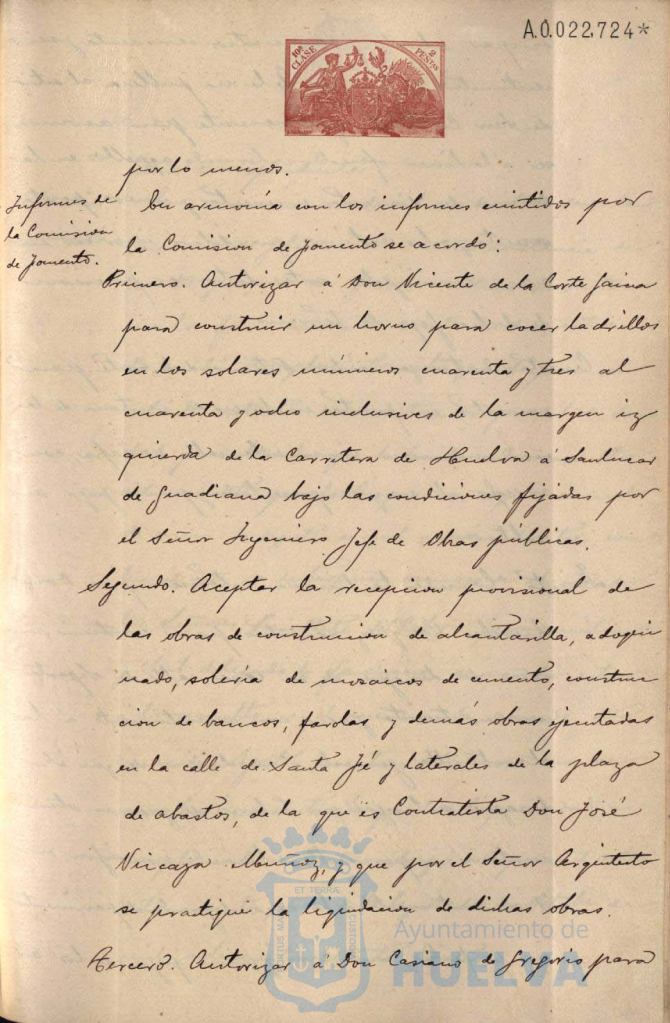 A.0.022.724*
10ª CLASE
2 PESETAS
por lo menos.
Informes de
la Comision
de Fomento.
En armonía con los informes emitidos por
la Comision de Fomento se acordó:
Primero. Autorizar á Don Vicente de la Corte
para construir un horno para cocer ladrillos
en los solares números cuarenta y tres al
cuarenta y ocho inclusives de la margen iz
quierda de la Carretera de Huelva á Sanlucar
de Guadiana bajo las condiciones fijadas por
el Señor Ingeniero Jefe de Obras públicas.
Segundo. Aceptar la recepcion provisional de
las obras de construccion de alcantarilla, adoqui
nado, solería de mozaicos de cemento, construc
cion de bancos, farolas y demás obras ejecutadas
en la calle de Santa Fé y laterales de la plaza
de abastos, de la que es Contratista Don José
Vizcaya Muñoz, y que por el Señor Arquitecto
se practique la liquidacion de dichas obras.
Tercero. Autorizar á Don Casiano de Gregorio para
Ayuntamiento de
HUELVA